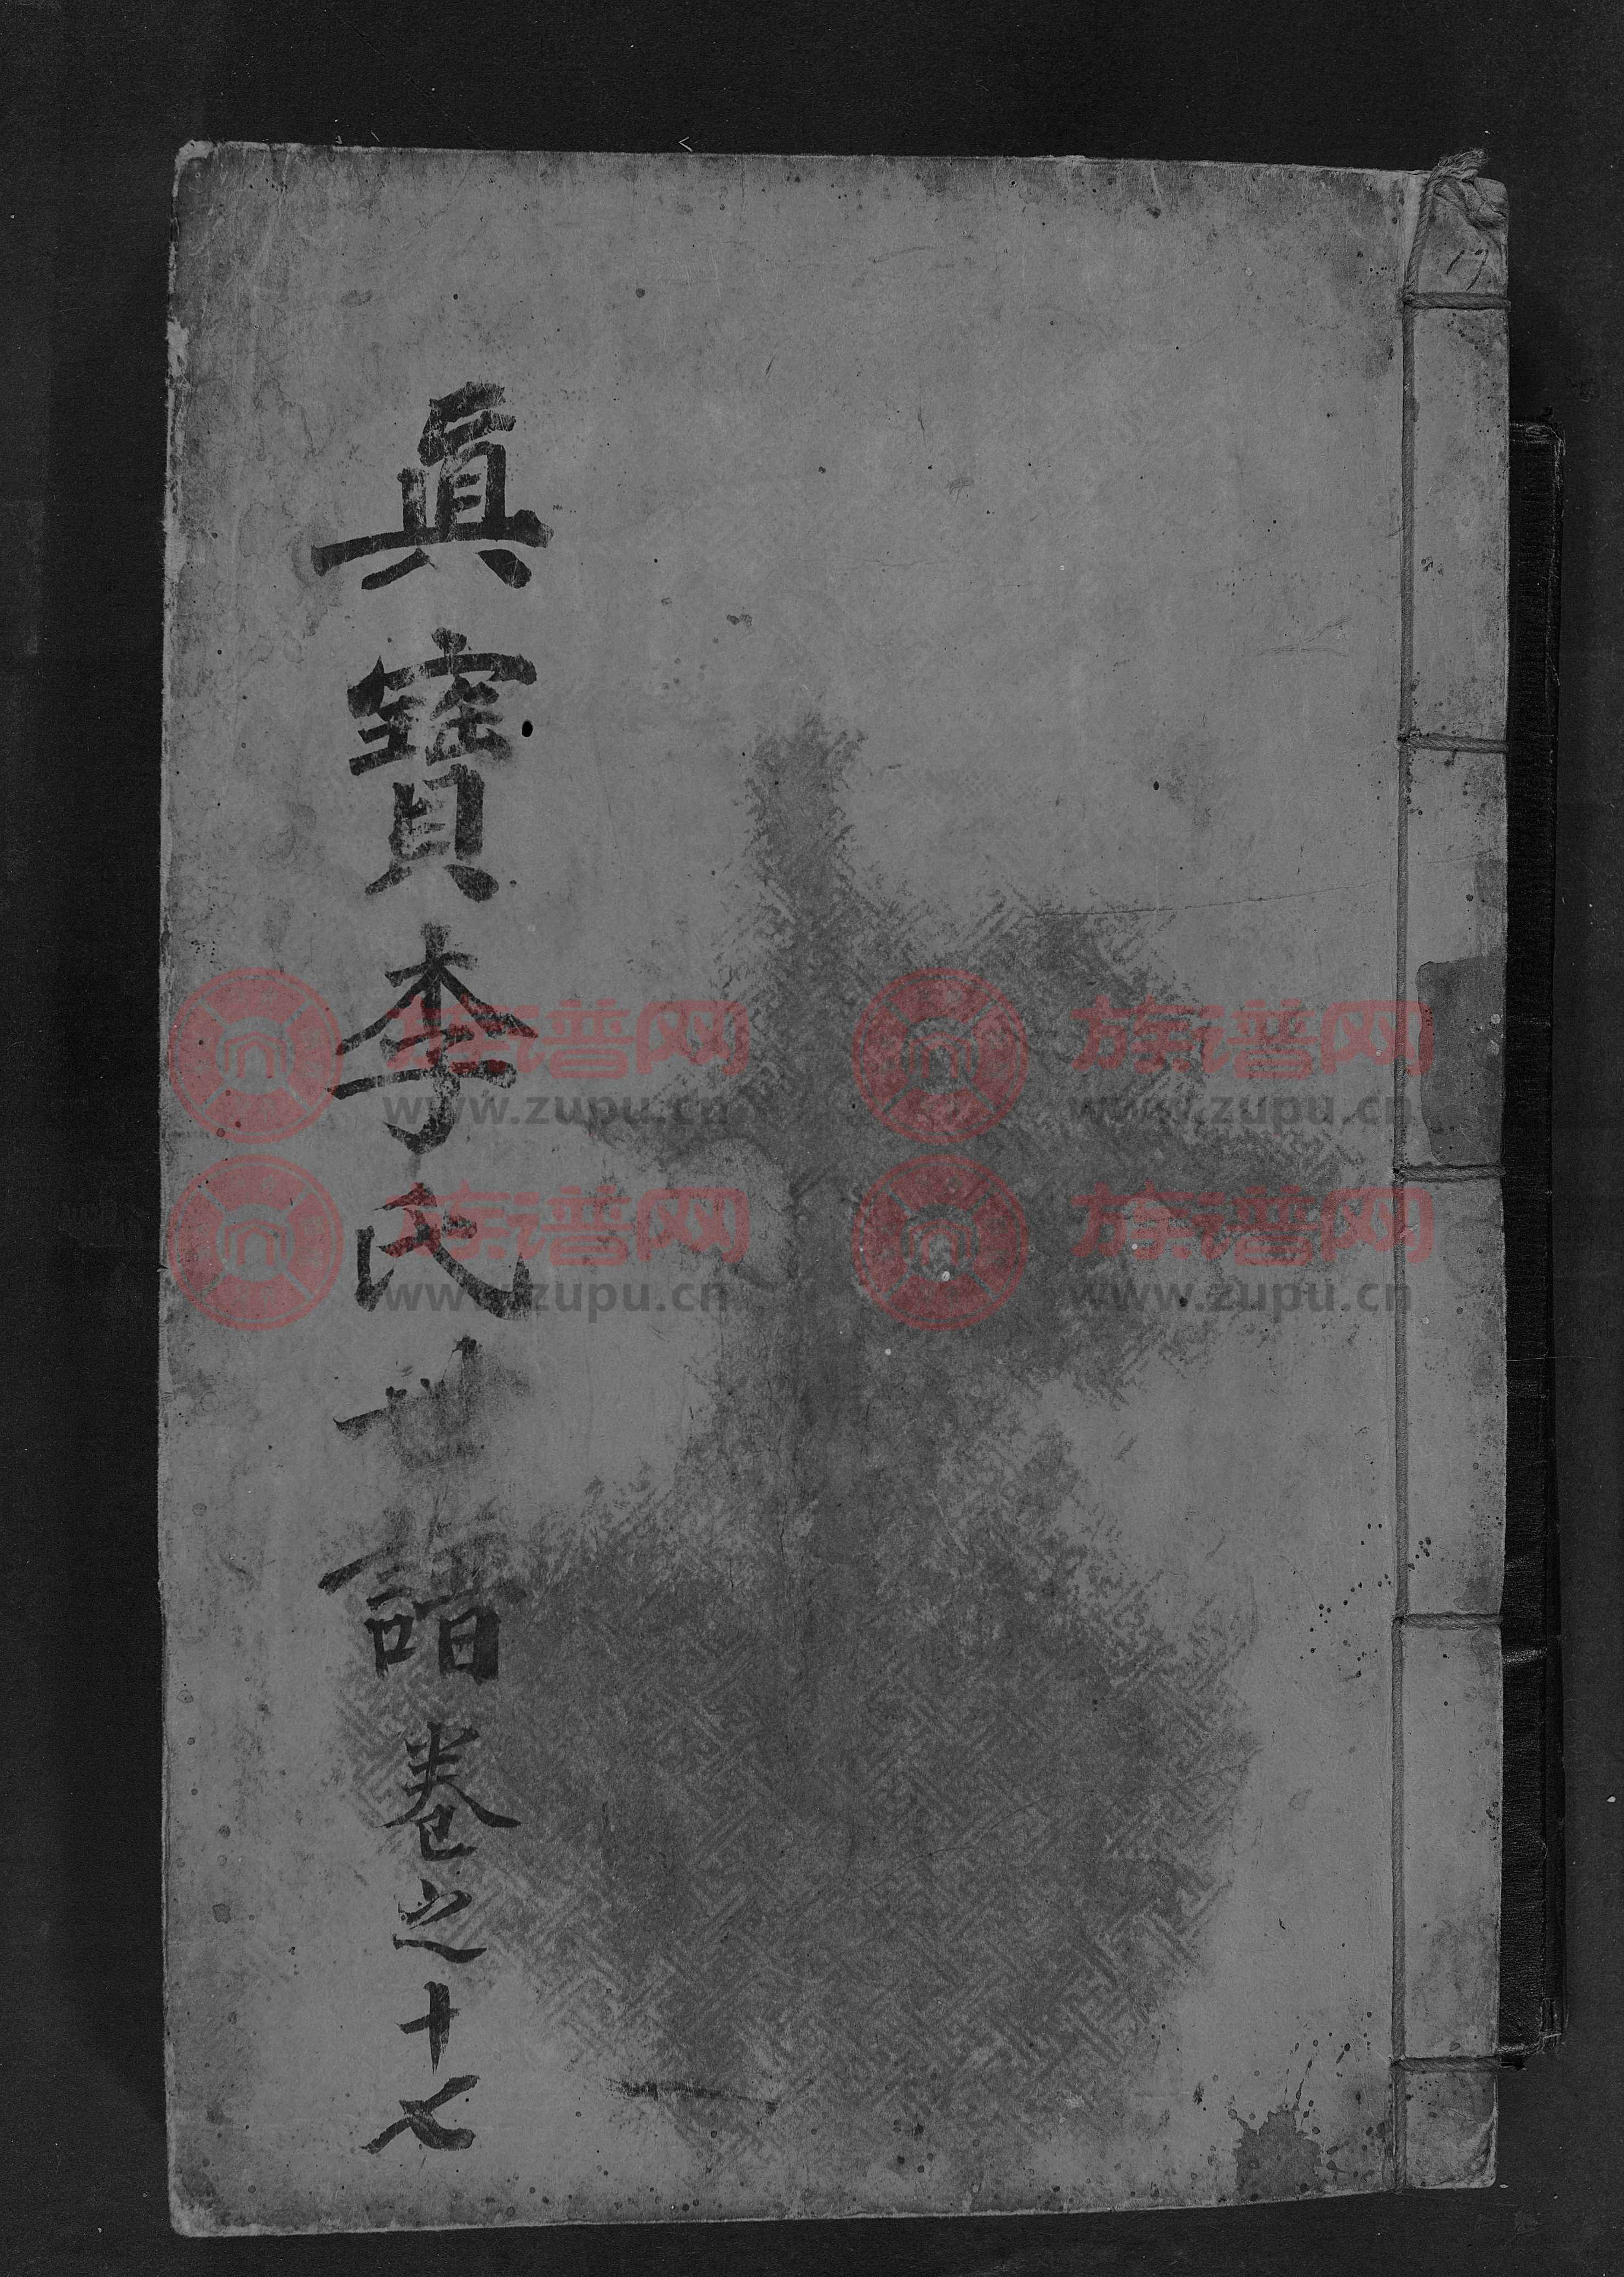 眞寶李氏世譜 卷之十七
17
族谱网 www.zupu.cn
族谱网 www.zupu.cn
族谱网 www.zupu.cn
族谱网 www.zupu.cn